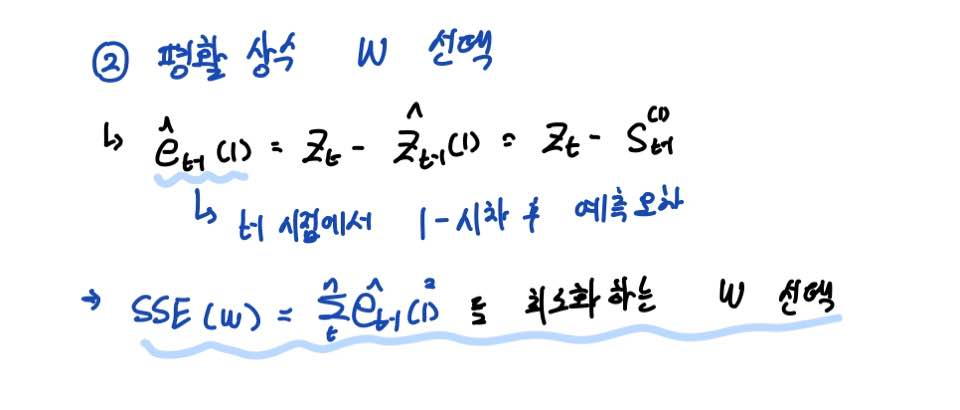 ② 평활 상수 W 선택
↳ ê_{t-1}(1) = Z_t - Ẑ_{t-1}(1) = Z_t - S_{t-1}^{(1)}
↳ t-1 시점에서 1-시차 후 예측오차
→ SSE(w) = Σ_t^n ê_{t-1}(1)^2 를 최소화 하는 W 선택